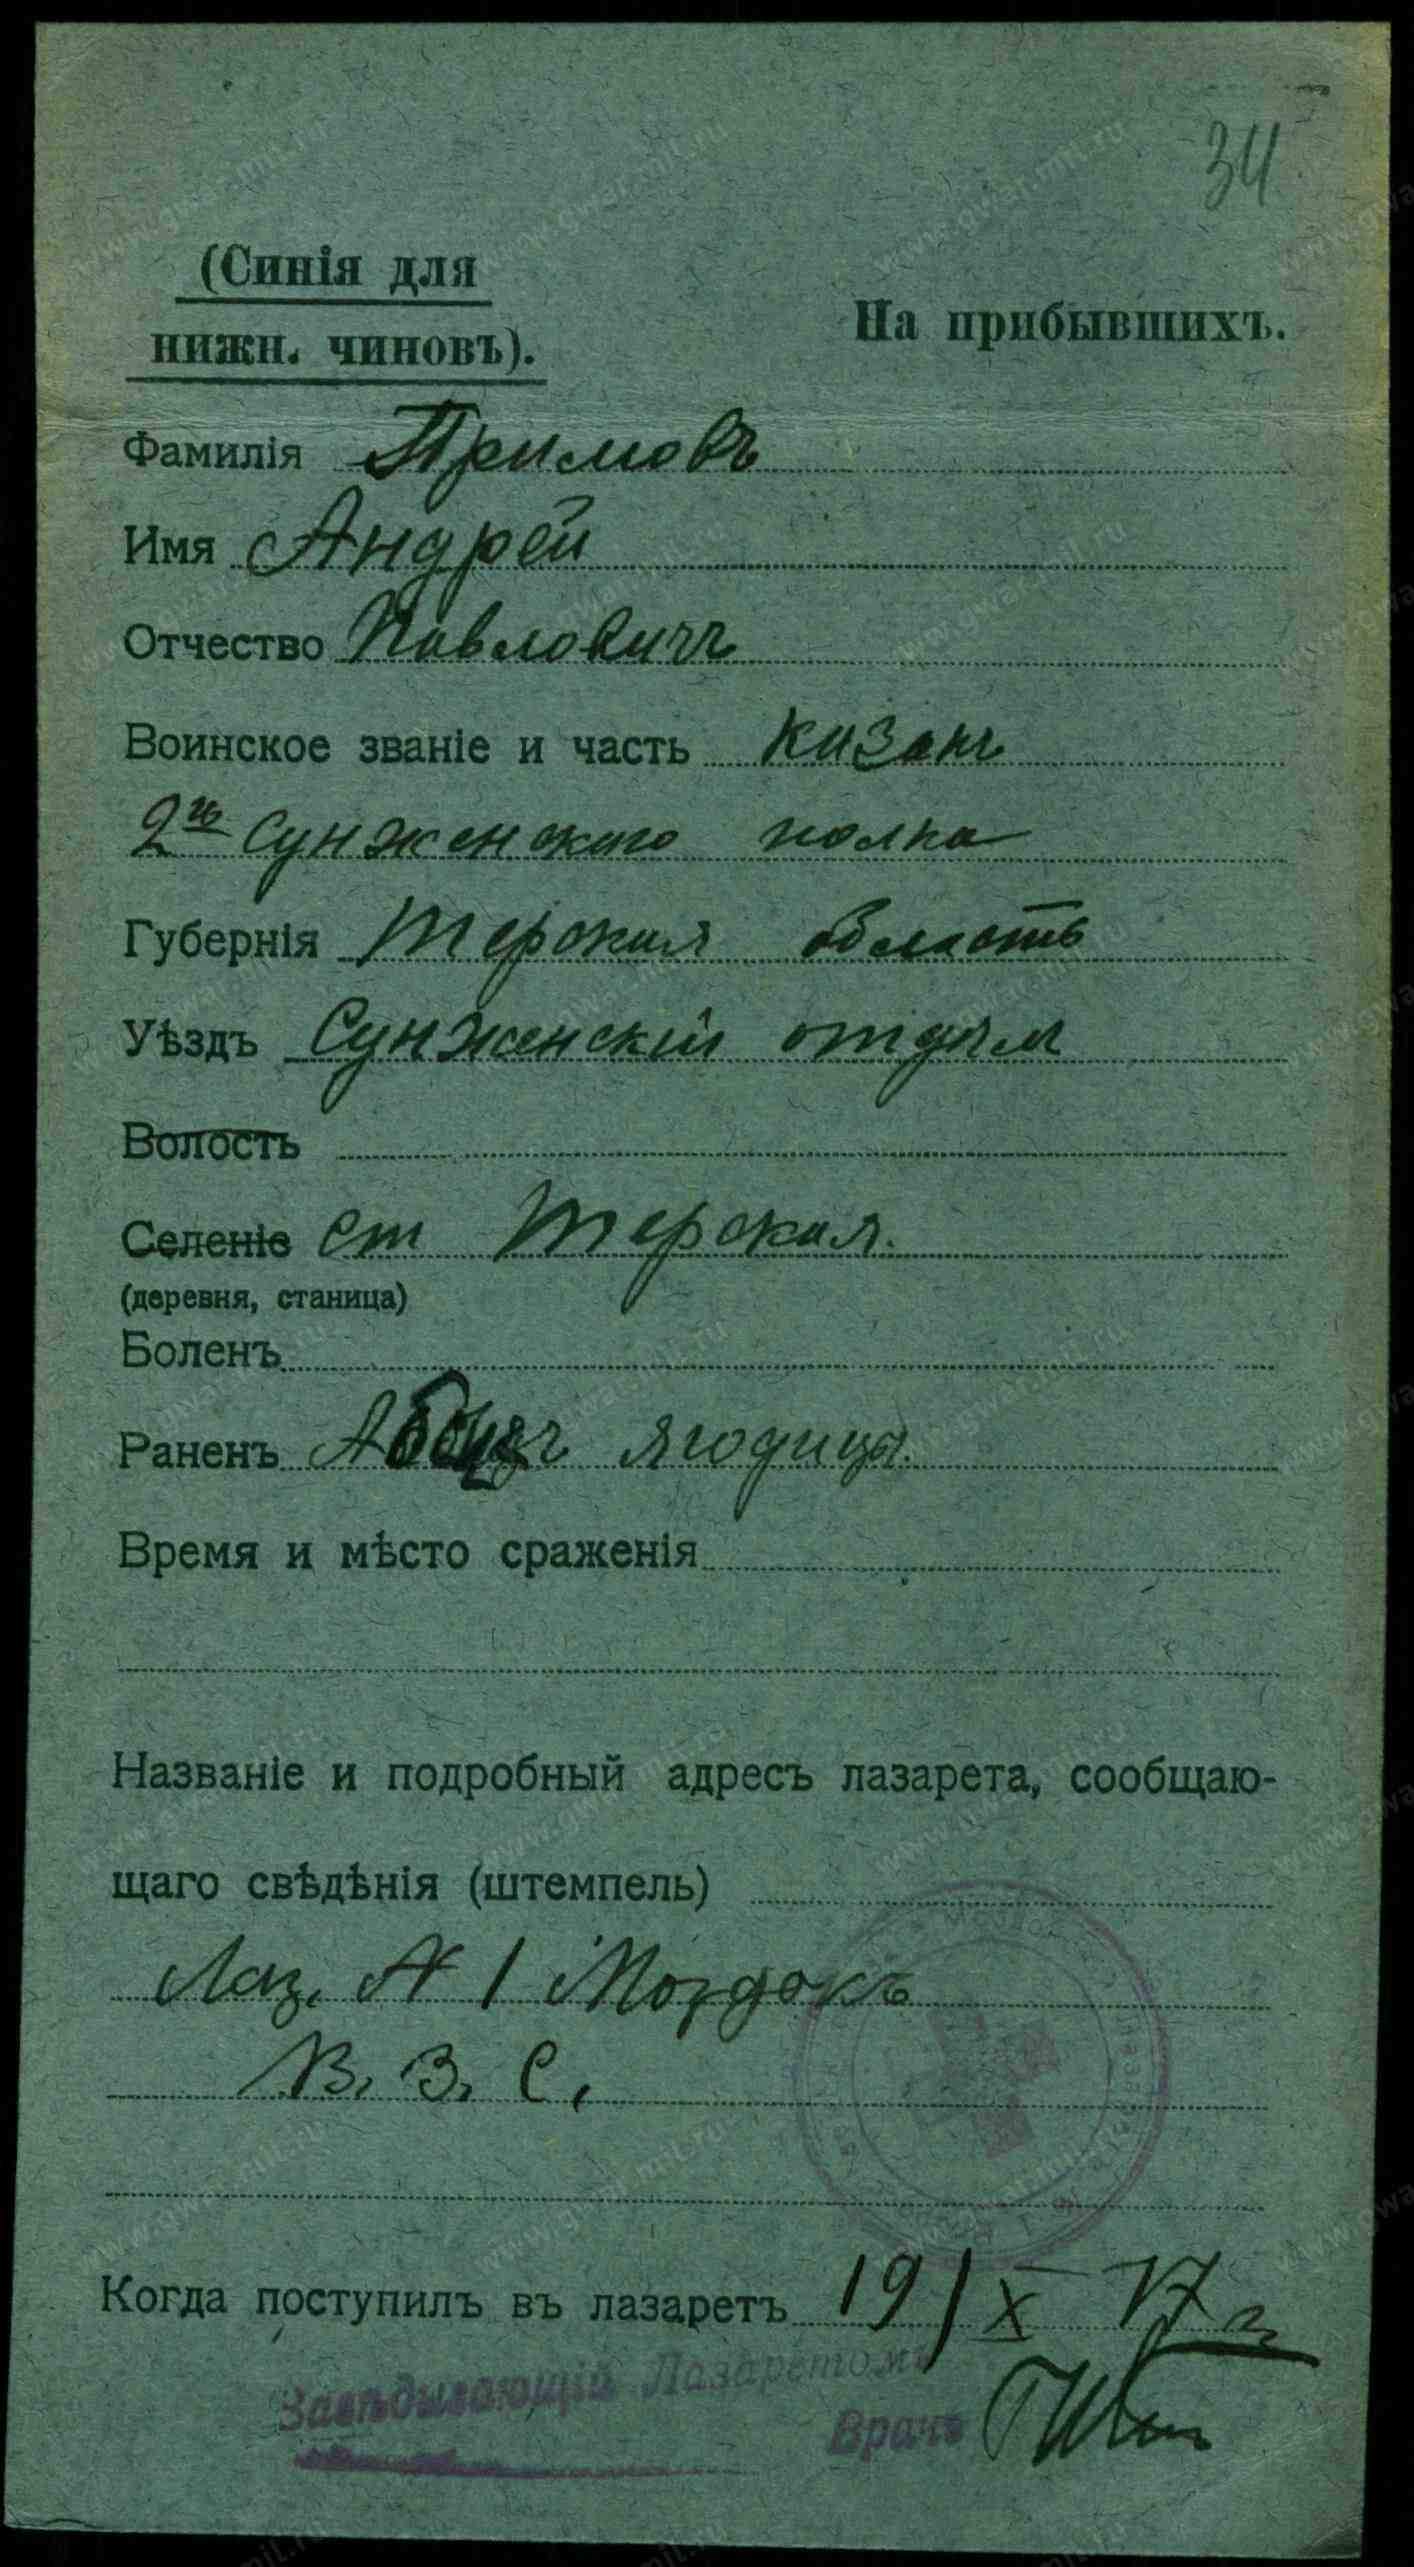 34
(Синія для
нижн. чиновъ).
На прибывшихъ.
Фамилія Примовъ
Имя Андрей
Отчество Павловичъ
Воинское званіе и часть казакъ
2го Сунженскаго полка
Губернія Терская область
Уѣздъ Сунженскій отдѣл
Волость
Селеніе ст Терская.
(деревня, станица)
Боленъ
Раненъ Абсцъ ягодицы.
Время и мѣсто сраженія
Названіе и подробный адресъ лазарета, сообщаю-
щаго свѣдѣнія (штемпель)
Лаз. № 1 Моздокъ
В. З. С.
Когда поступилъ въ лазаретъ 19/X 17 г.
Завѣдывающій Лазаретомъ
Врачъ